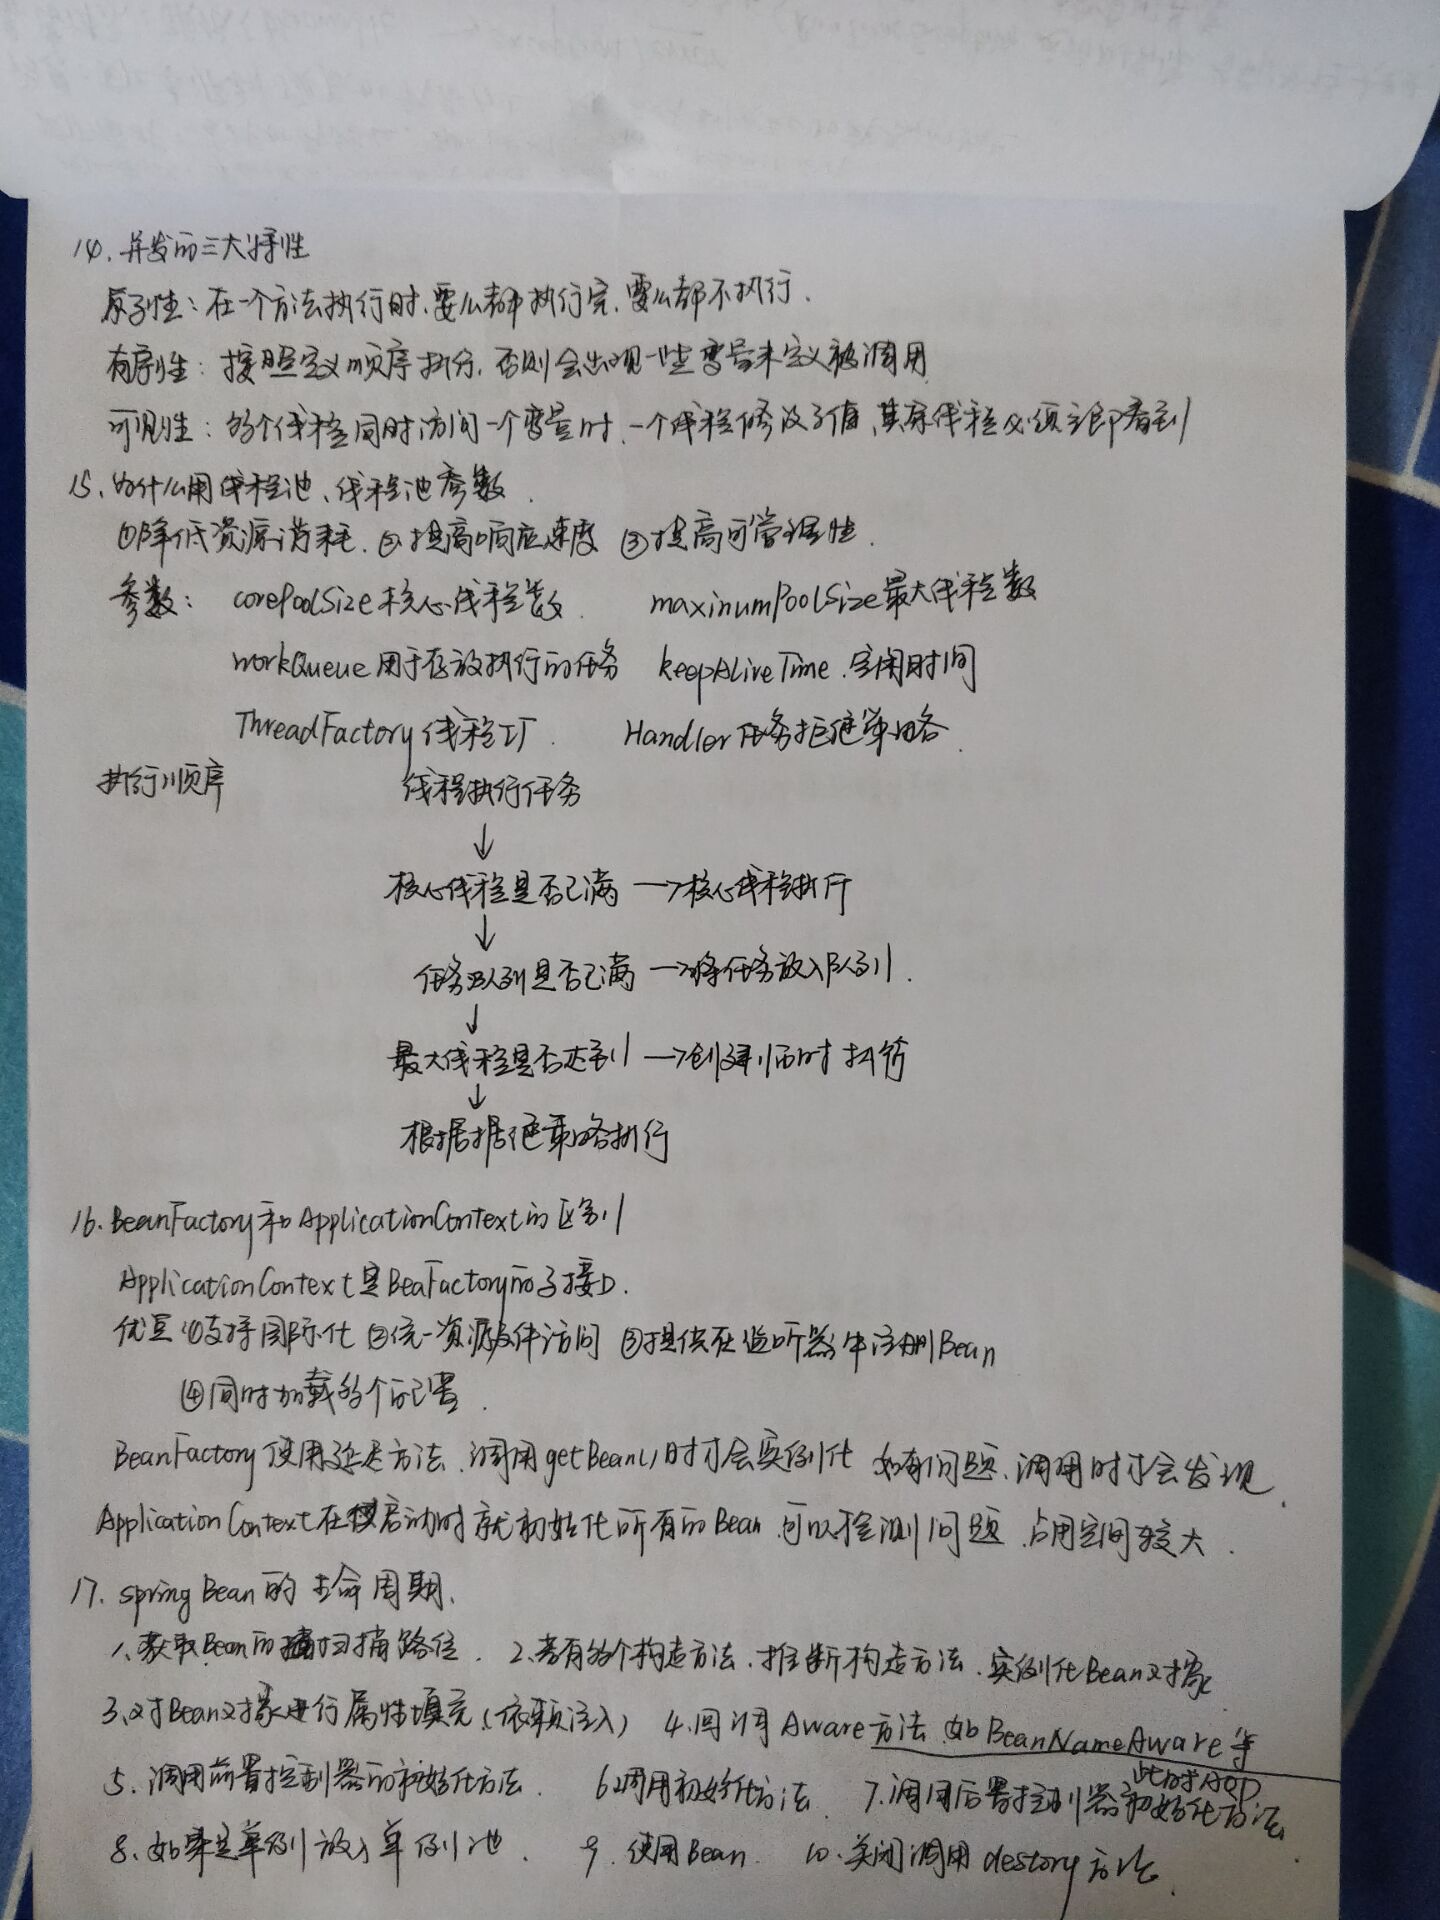 14、并发的三大特性
原子性：在一个方法执行时、要么都执行完、要么都不执行.
有序性：按照定义顺序执行、否则会出现一些变量未定义被调用
可见性：多个线程同时访问一个变量时、一个线程修改了值、其余线程必须立即看到
15、为什么用线程池、线程池参数.
①降低资源消耗、②提高响应速度 ③提高可管理性.
参数： corePoolSize核心线程数. maxinumPoolSize最大线程数
workQueue用于存放执行的任务 keepAliveTime.空闲时间
ThreadFactory线程工厂. Handler任务拒绝策略.
执行顺序 线程执行任务
↓
核心线程是否已满 →核心线程执行
↓
任务队列是否已满 →将任务放入队列.
↓
最大线程是否达到 →创建临时执行
↓
根据据绝策略执行
16、BeanFactory和ApplicationContext的区别
ApplicationContext是BeaFactory的子接口.
优点①支持国际化 ②统一资源文件访问 ③提供在监听器中注册Bean
④同时加载多个配置.
BeanFactory使用延迟方法、调用getBean()时才会实例化 如有问题、调用时才会发现.
ApplicationContext在启动时就初始化所有的Bean 可以检测问题.占用空间较大.
17、spring Bean的生命周期、
1、获取Bean的扫描路径. 2、若有多个构造方法、推断构造方法、实例化Bean对象
3、对Bean对象进行属性填充(依赖注入) 4、回调Aware方法.如BeanNameAware等
此时AOP
5、调用前置控制器的初始化方法 6、调用初始化方法. 7、调用后置控制器初始化方法
8、如果是单例放入单例池. 9.使用Bean. 10、关闭调用destory方法.